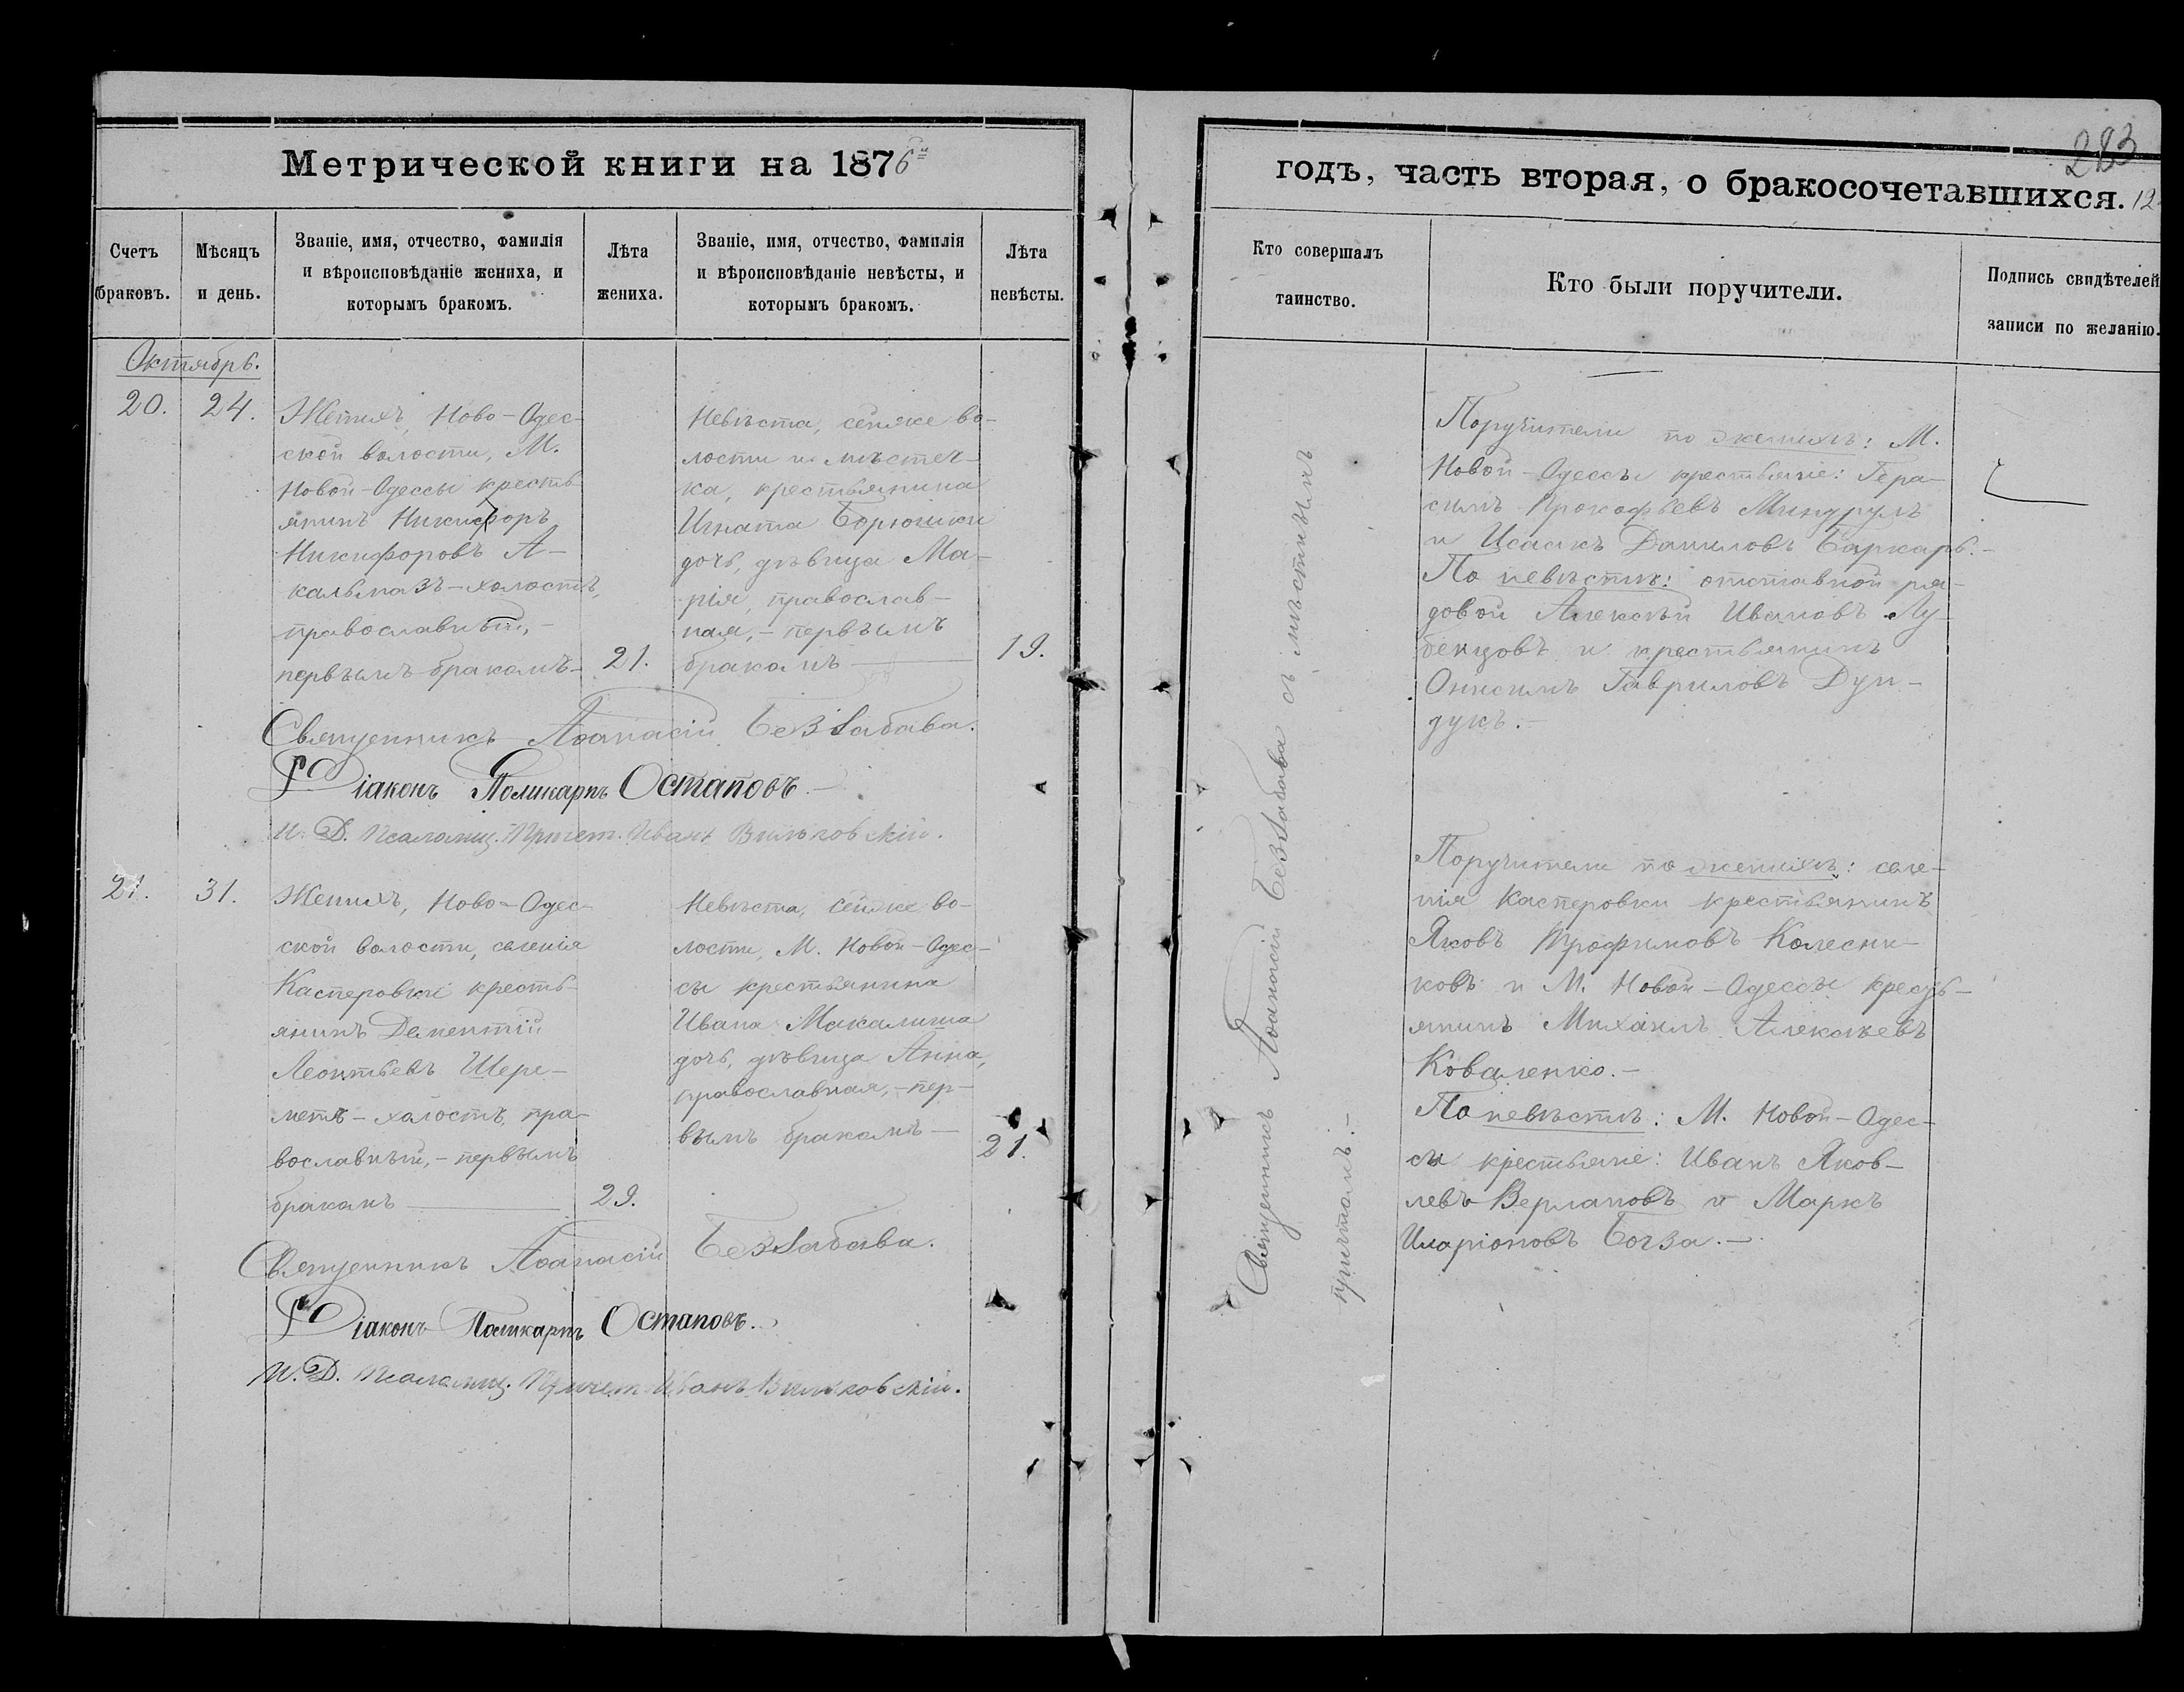 Метрической книги на 1876й
Счетъ браковъ.
Мѣсяцъ и день.
Званіе, имя, отчество, фамилія и вѣроисповѣданіе жениха, и которымъ бракомъ.
Лѣта жениха.
Званіе, имя, отчество, фамилія и вѣроисповѣданіе невѣсты, и которымъ бракомъ.
Лѣта невѣсты.
Октябрь.
20.
24.
Женихъ, Ново-Одес-
ской волости, М.
Новой-Одессы кресть
янинъ Никифоръ
Никифоровъ А-
кальмазъ-холостъ,
православный,-
первымъ бракомъ-
21.
Невѣста, сейже во-
лости и мѣстеч-
ка, крестьянина
Игната Борюшки
дочь, дѣвица Ма-
рія, православ-
ная,- первымъ
бракомъ
19.
Священникъ Аѳанасій БезЗабава.
Діаконъ Поликарпъ Остаповъ.-
И. Д. Псаломщ. Причет. Иванъ Вильковскій.
21.
31.
Женихъ, Ново-Одес-
ской волости, селенія
Касперовки кресть
янинъ Дементій
Леонтьевъ Шере-
метъ-холостъ, пра-
вославный,-первымъ
бракомъ
29.
Невѣста, сейже во-
лости, М. Новой-Одес-
сы крестьянина
Ивана Макалиша
дочь, дѣвица Анна,
православная,-пер-
вымъ бракомъ-
21.
Священникъ Аѳанасій БезЗабава.
Діаконъ Поликарпъ Остаповъ.
И. Д. Псаломщ. Причет. Иванъ Вильковскій.
283
годъ, часть вторая, о бракосочетавшихся. 12
Кто совершалъ таинство.
Кто были поручители.
Подпись свидѣтелей записи по желанію.
Священникъ Аѳанасій БезЗабава съ мѣстнымъ
причтомъ.-
Поручители по женихѣ: М.
Новой-Одессы крестьяне: Гера-
симъ Прокофьевъ Миндрулъ
и Исаакъ Даниловъ Баркарь.-
По невѣстѣ: отставной ря-
довой Алексѣй Ивановъ Лу-
бенцовъ и крестьянинъ
Онисимъ Гавриловъ Дун-
дукъ.-
Поручители по женихѣ: селе-
нія Касперовки крестьянинъ
Яковъ Трофимовъ Колесни-
ковъ и М. Новой-Одессы кресть-
янинъ Михаилъ Алексѣевъ
Коваленко.-
По невѣстѣ: М. Новой-Одес-
сы крестьяне: Иванъ Яков-
левъ Верлановъ и Маркъ
Иларіоновъ Богза.-